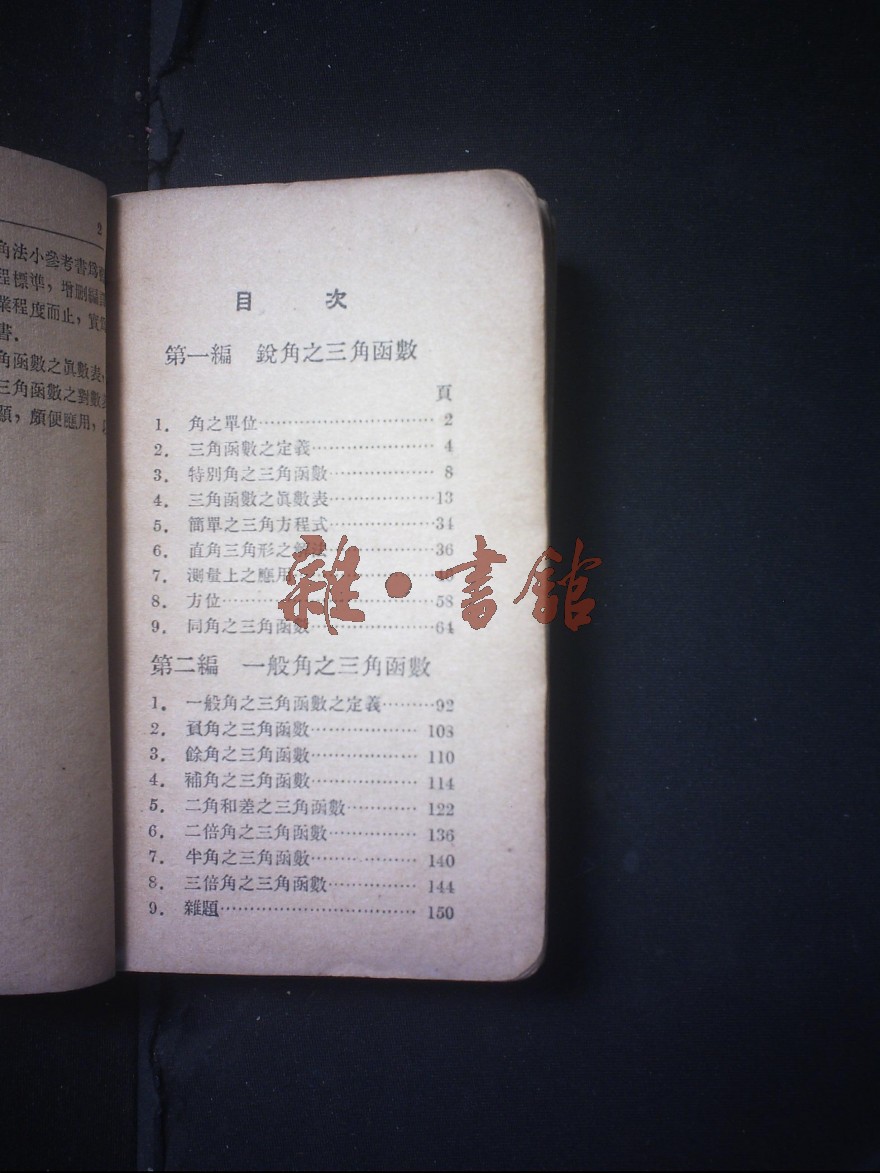 2
角法小參考書爲
程標準，增刪編
業程度而止，實
書．
角函數之眞數表，
三角函數之對數
願，頗便應用，
目 次
第一編 銳角之三角函數
頁
1. 角之單位……………………………2
2. 三角函數之定義……………………4
3. 特別角之三角函數…………………8
4. 三角函數之眞數表…………………13
5. 簡單之三角方程式…………………34
6. 直角三角形之解法…………………36
7. 測量上之應用
8. 方位…………………………………58
9. 同角之三角函數……………………64
第二編 一般角之三角函數
1. 一般角之三角函數之定義………92
2. 負角之三角函數………………108
3. 餘角之三角函數………………110
4. 補角之三角函數………………114
5. 二角和差之三角函數…………122
6. 二倍角之三角函數……………136
7. 半角之三角函數………………140
8. 三倍角之三角函數……………144
9. 雜題……………………………150
雜·書館